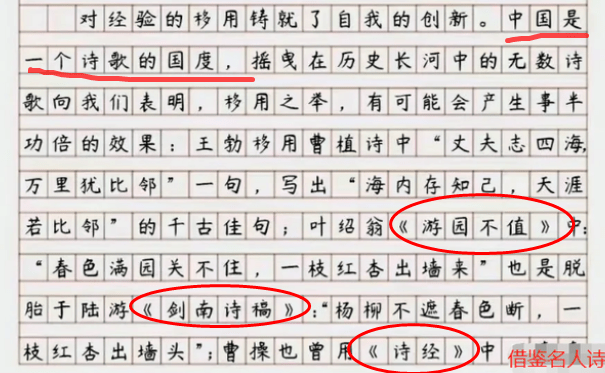 对经验的移用铸就了自我的创新。中国是
一个诗歌的国度，摇曳在历史长河中的无数诗
歌向我们表明，移用之举，有可能会产生事半
功倍的效果：王勃移用曹植诗中“丈夫志四海，
万里犹比邻”一句，写出“海内存知己，天涯
若比邻”的千古佳句；叶绍翁《游园不值》中：
“春色满园关不住，一枝红杏出墙来”也是脱
胎于陆游《剑南诗稿》：“杨柳不遮春色断，一
枝红杏出墙头”；曹操也曾用《诗经》中
借鉴名人诗